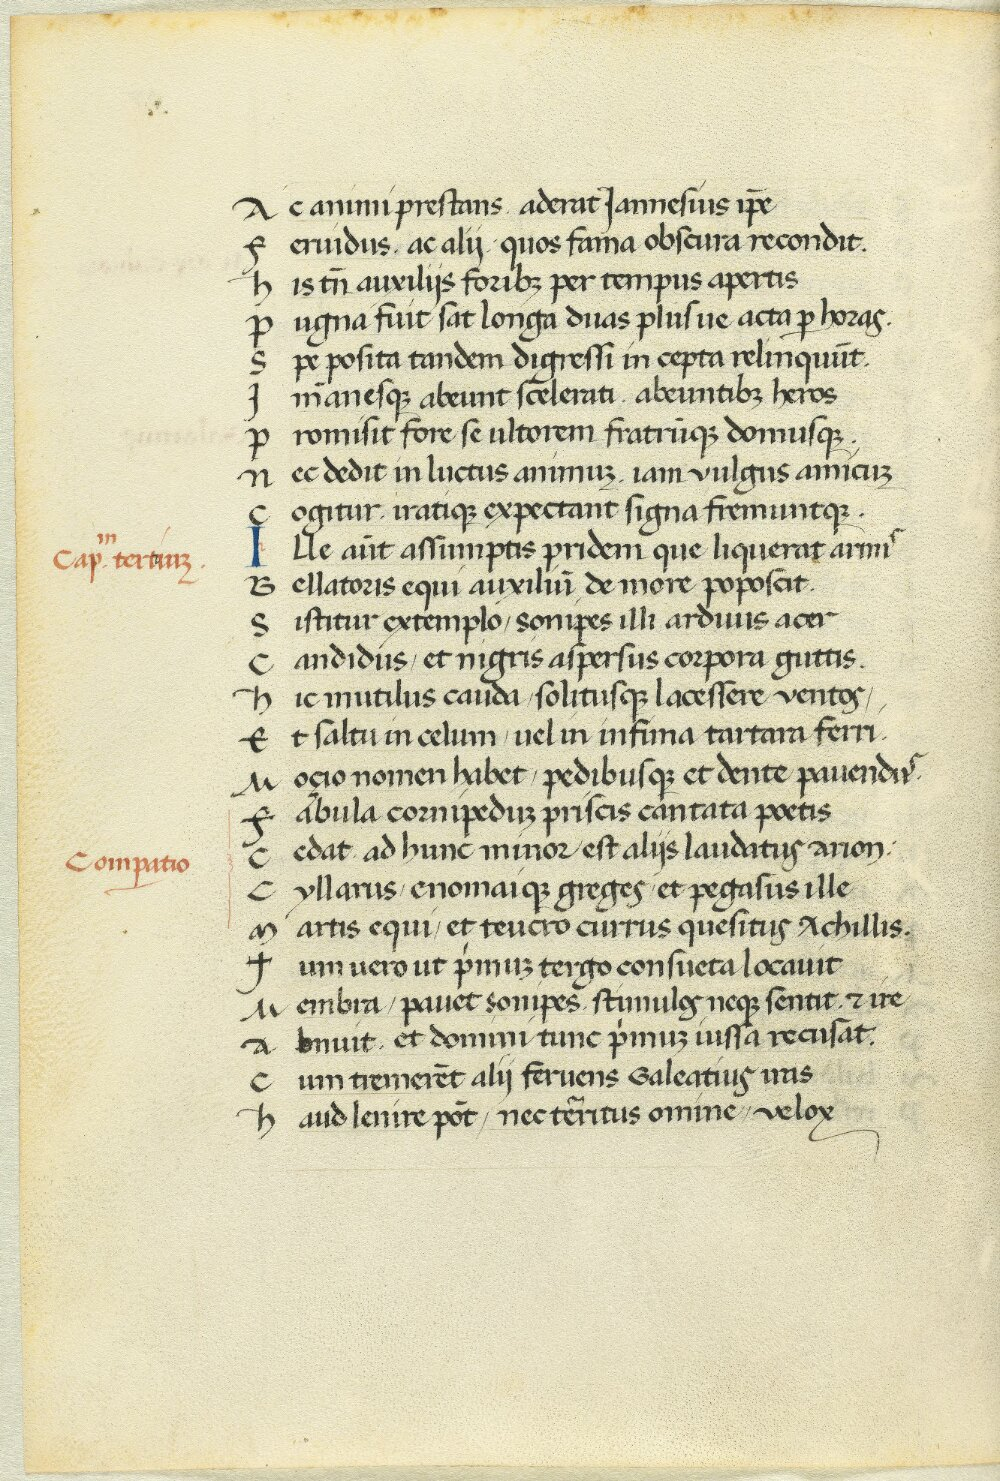 Ac animi prestans . aderat Jannesius ip̄e
feruidus . ac alij . quos fama obscura recondit.
his tn̄ auxilijs foribꝫ per tempus apertis
pugna fuit sat longa duas plusue acta ꝑ horas.
Spe posita tandem digressi in cepta relinquūt.
Jm̄anesqꝫ abeunt scelerati . abeuntibꝫ heros
promisit fore se ultorem fratrūqꝫ domusqꝫ .
nec dedit in luctus animuꝫ . iam vulgus amicuꝫ
Cogitur . iratiqꝫ expectant signa fremuntqꝫ .
Cap.m tertiuꝫ .
Ille aūt assumptis pridem que liquerat armis
Bellatoris equi auxiliū de more poposcit .
Sistitur extemplo / sonipes illi arduus acer
Candidus / et nigris aspersus corpora guttis .
hic mutilus cauda / solitusqꝫ lacessere ventos /
Et saltu in celum / uel in infima tartara ferri .
Mocio nomen habet / pedibusqꝫ et dente pauendus .
fābula cornipeduꝫ priscis cantata poetis
Compatio
Cedat . ad hunc minor est alijs laudatus arion .
Cyllarus / enomaiqꝫ greges / et pegasus ille
martis equi / et teucro currus quesitus Achillis .
Tum uero ut pͥmuꝫ tergo consueta locauit
Membra / pauet sonipes . stimulos neqꝫ sentit . ⁊ ire
abnuit . et domini tunc pͥmuꝫ iussa recusat .
Cum tremerēt alij feruens Galeatius iras
haud lenire pōt / nec territus omine / velox